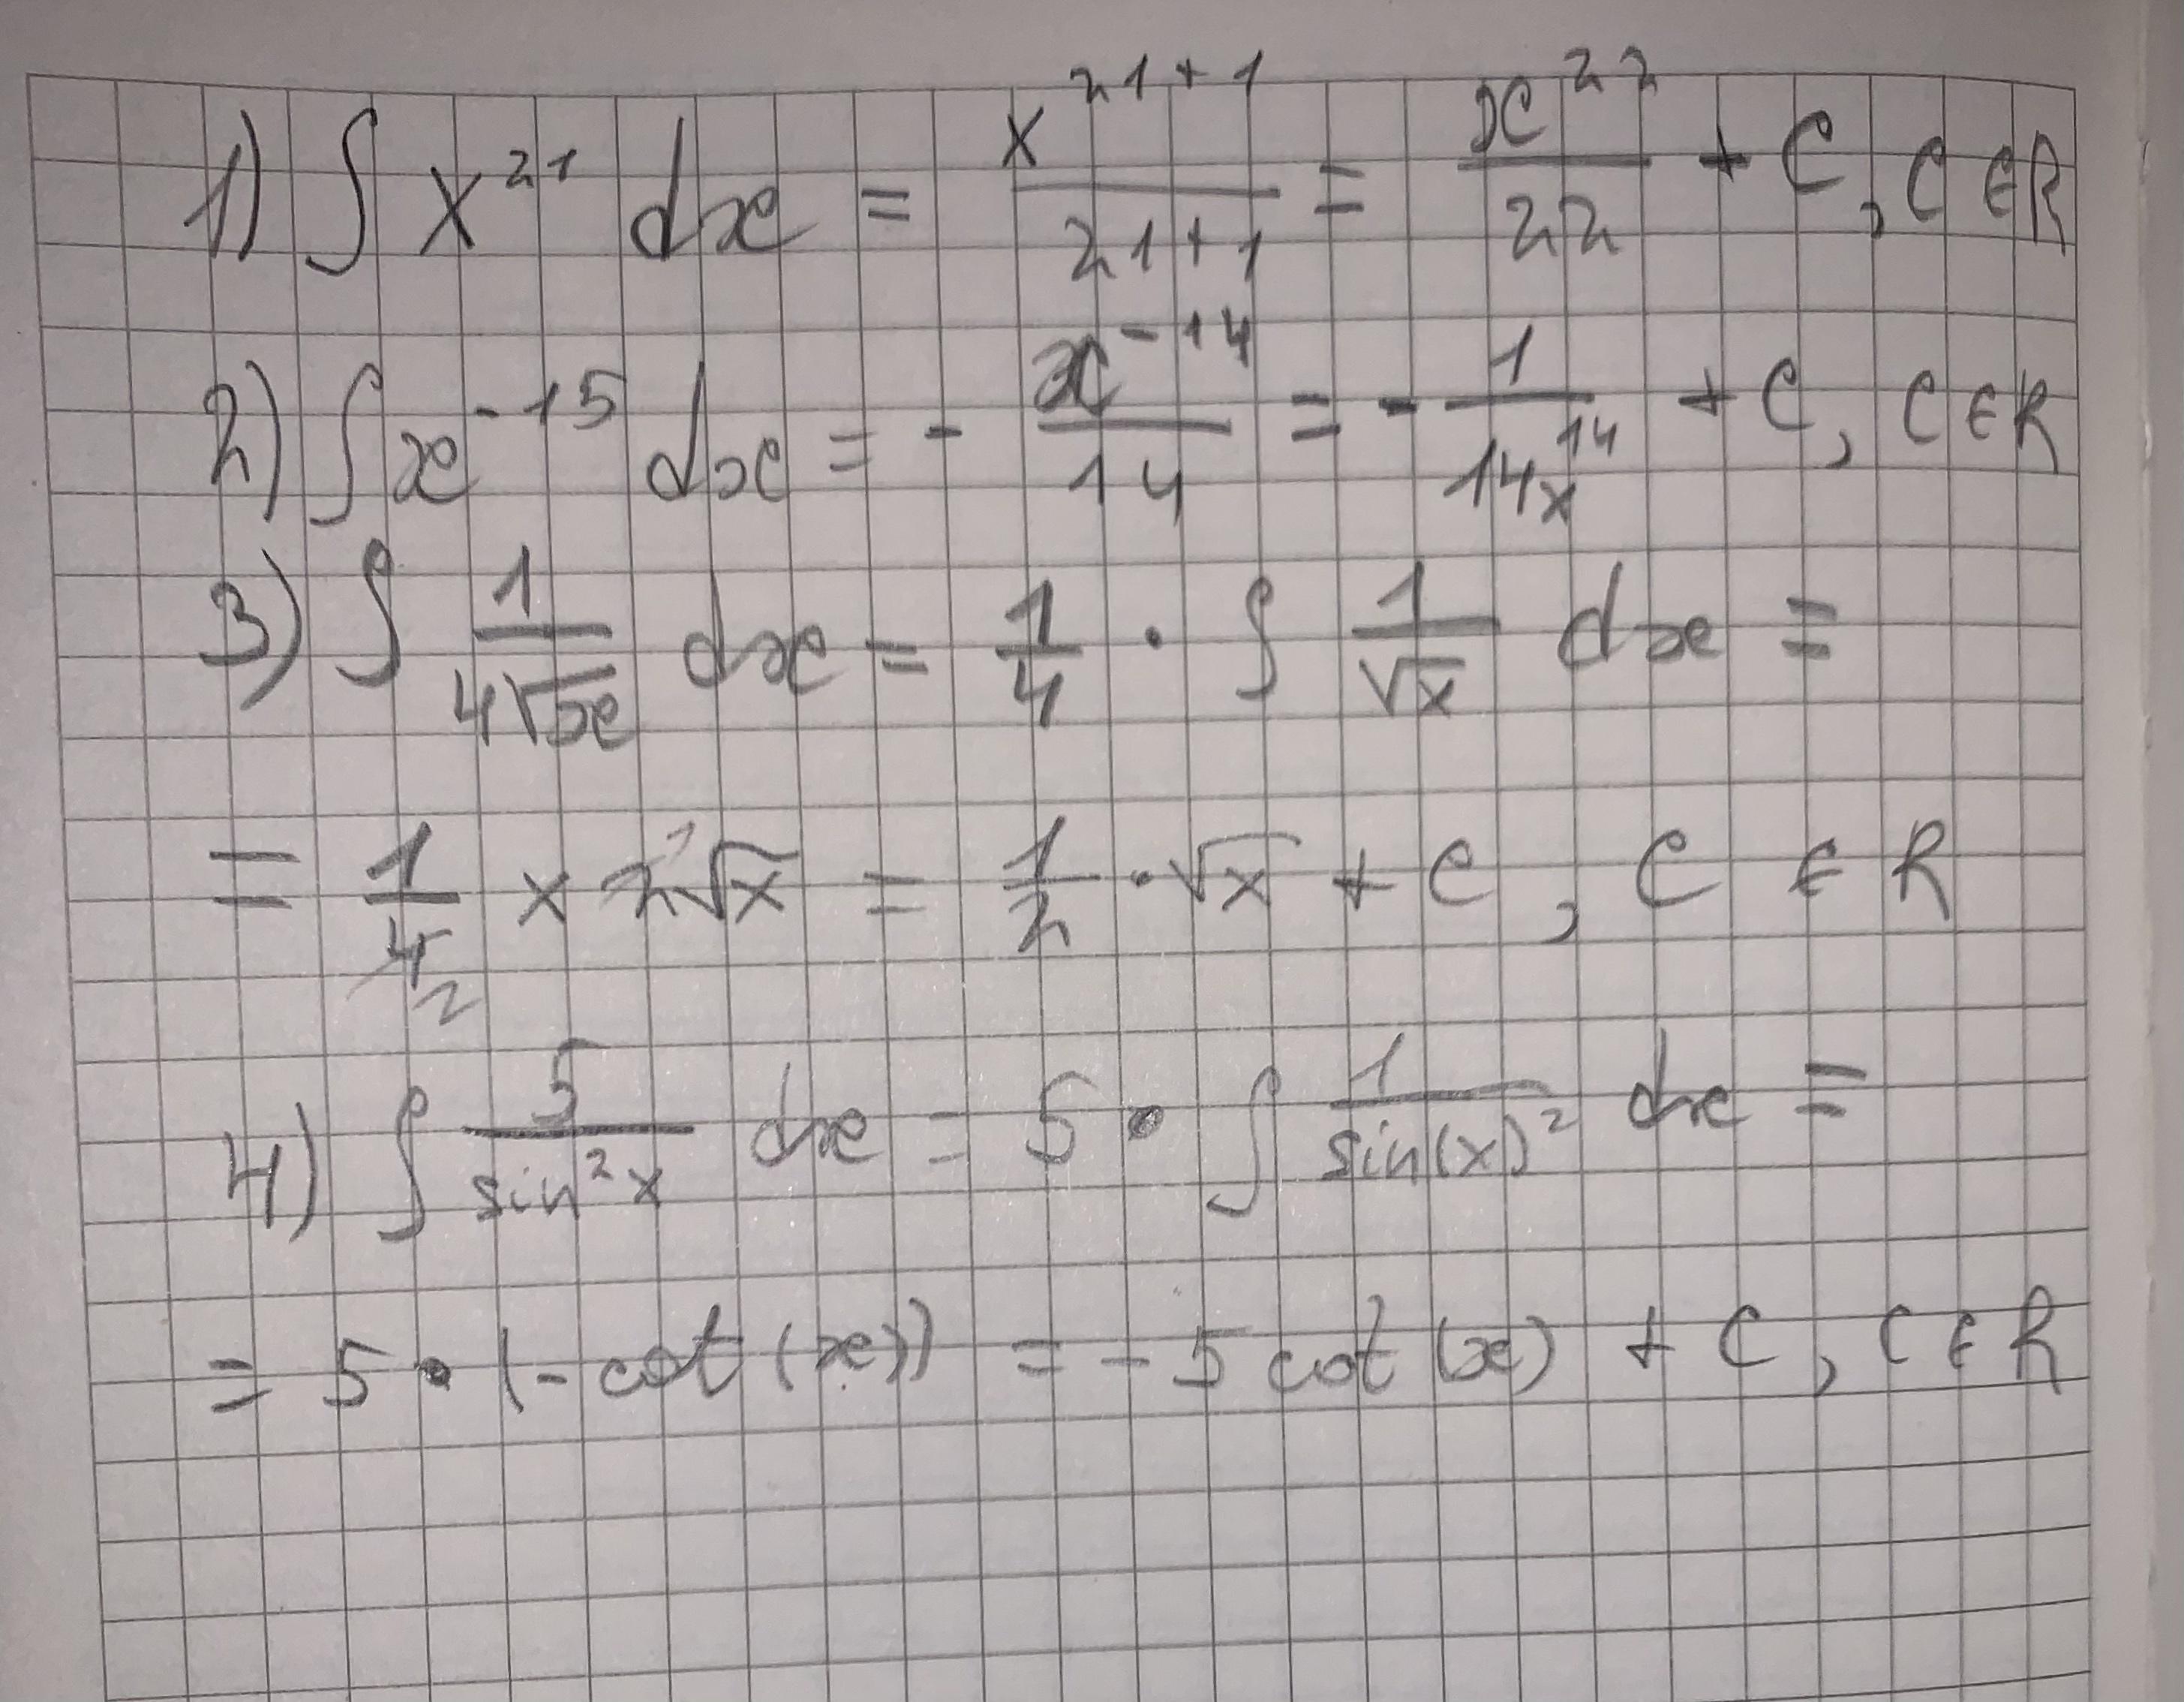 1) ∫ x²¹ dx = x²¹⁺¹/21+1 = x²²/22 + C, C ∈ R
2) ∫ x⁻¹⁵ dx = - x⁻¹⁴/14 = - 1/14x¹⁴ + C, C ∈ R
3) ∫ 1/4√x dx = 1/4 · ∫ 1/√x dx =
= 1/4 2 × 2 1 √x = 1/2 · √x + C, C ∈ R
4) ∫ 5/sin²x dx = 5 · ∫ 1/sin(x)² dx =
= 5 · (- cot (x)) = - 5 cot (x) + C, C ∈ R